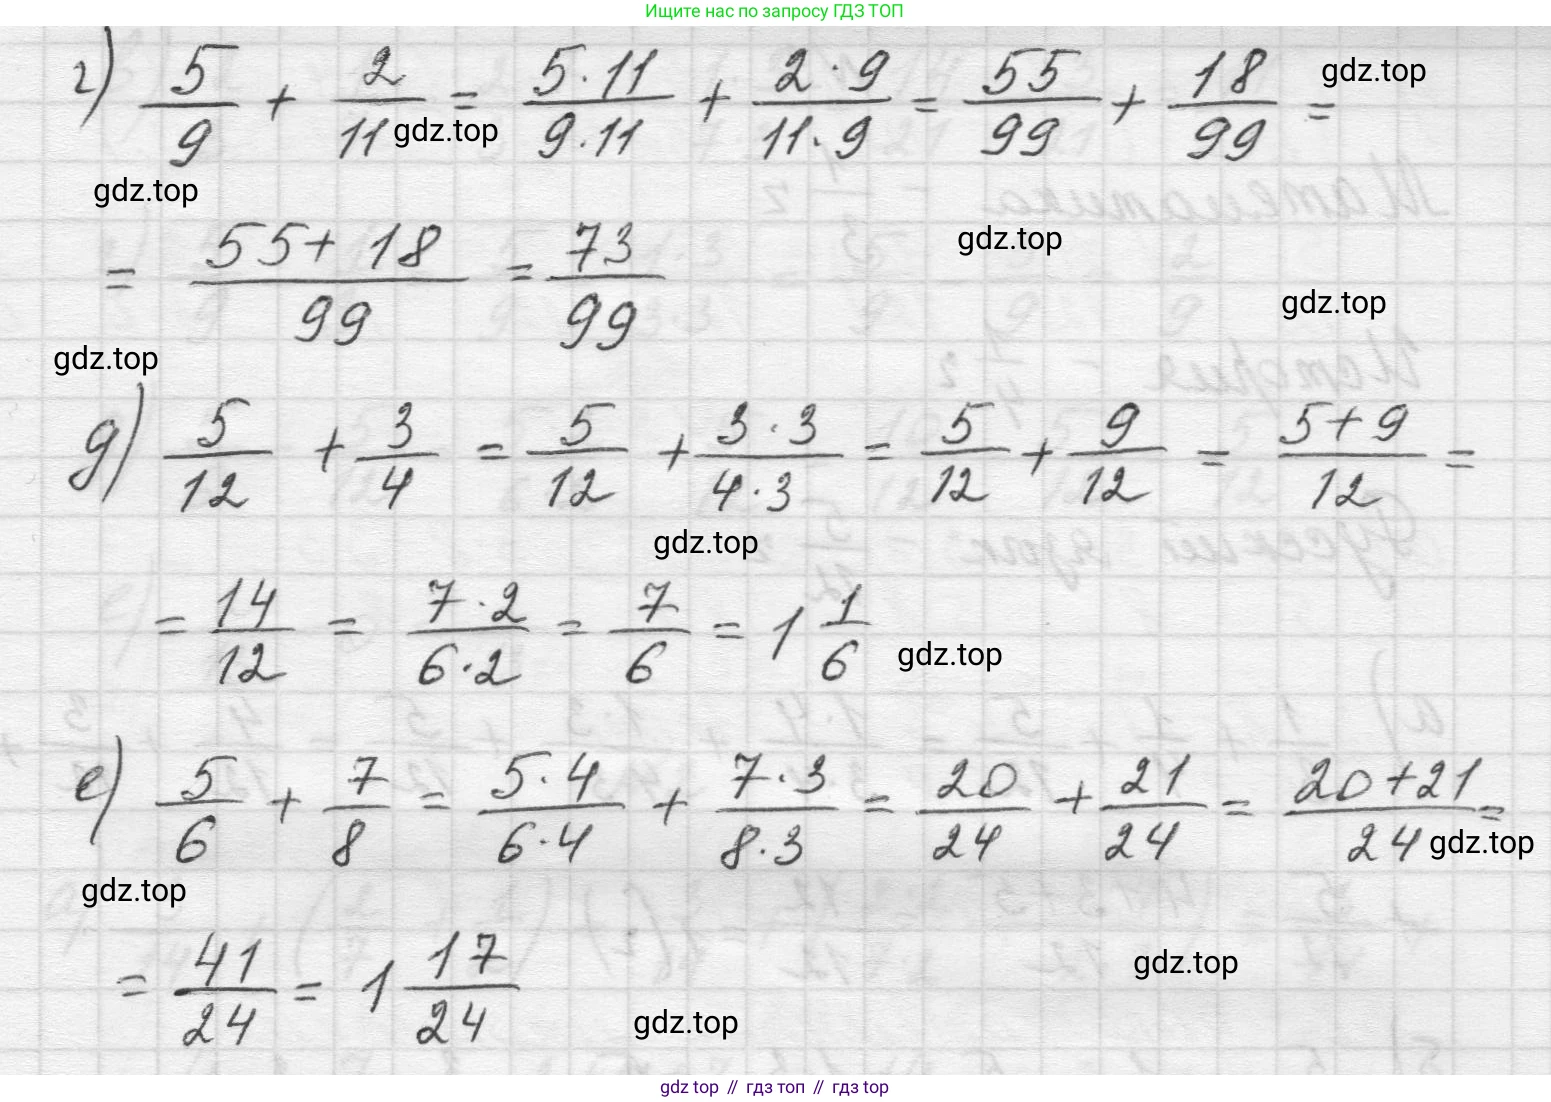 Ищите нас по запросу ГДЗ ТОП
г) 5/9 + 2/11 = 5·11/9·11 + 2·9/11·9 = 55/99 + 18/99 =
gdz.top
gdz.top
gdz.top
= 55+18/99 = 73/99
gdz.top
gdz.top
gdz.top
д) 5/12 + 3/4 = 5/12 + 3·3/4·3 = 5/12 + 9/12 = 5+9/12 =
gdz.top
= 14/12 = 7·2/6·2 = 7/6 = 1 1/6
gdz.top
е) 5/6 + 7/8 = 5·4/6·4 + 7·3/8·3 = 20/24 + 21/24 = 20+21/24 =
gdz.top
gdz.top
= 41/24 = 1 17/24
gdz.top
gdz.top
gdz top // гдз топ // gdz top